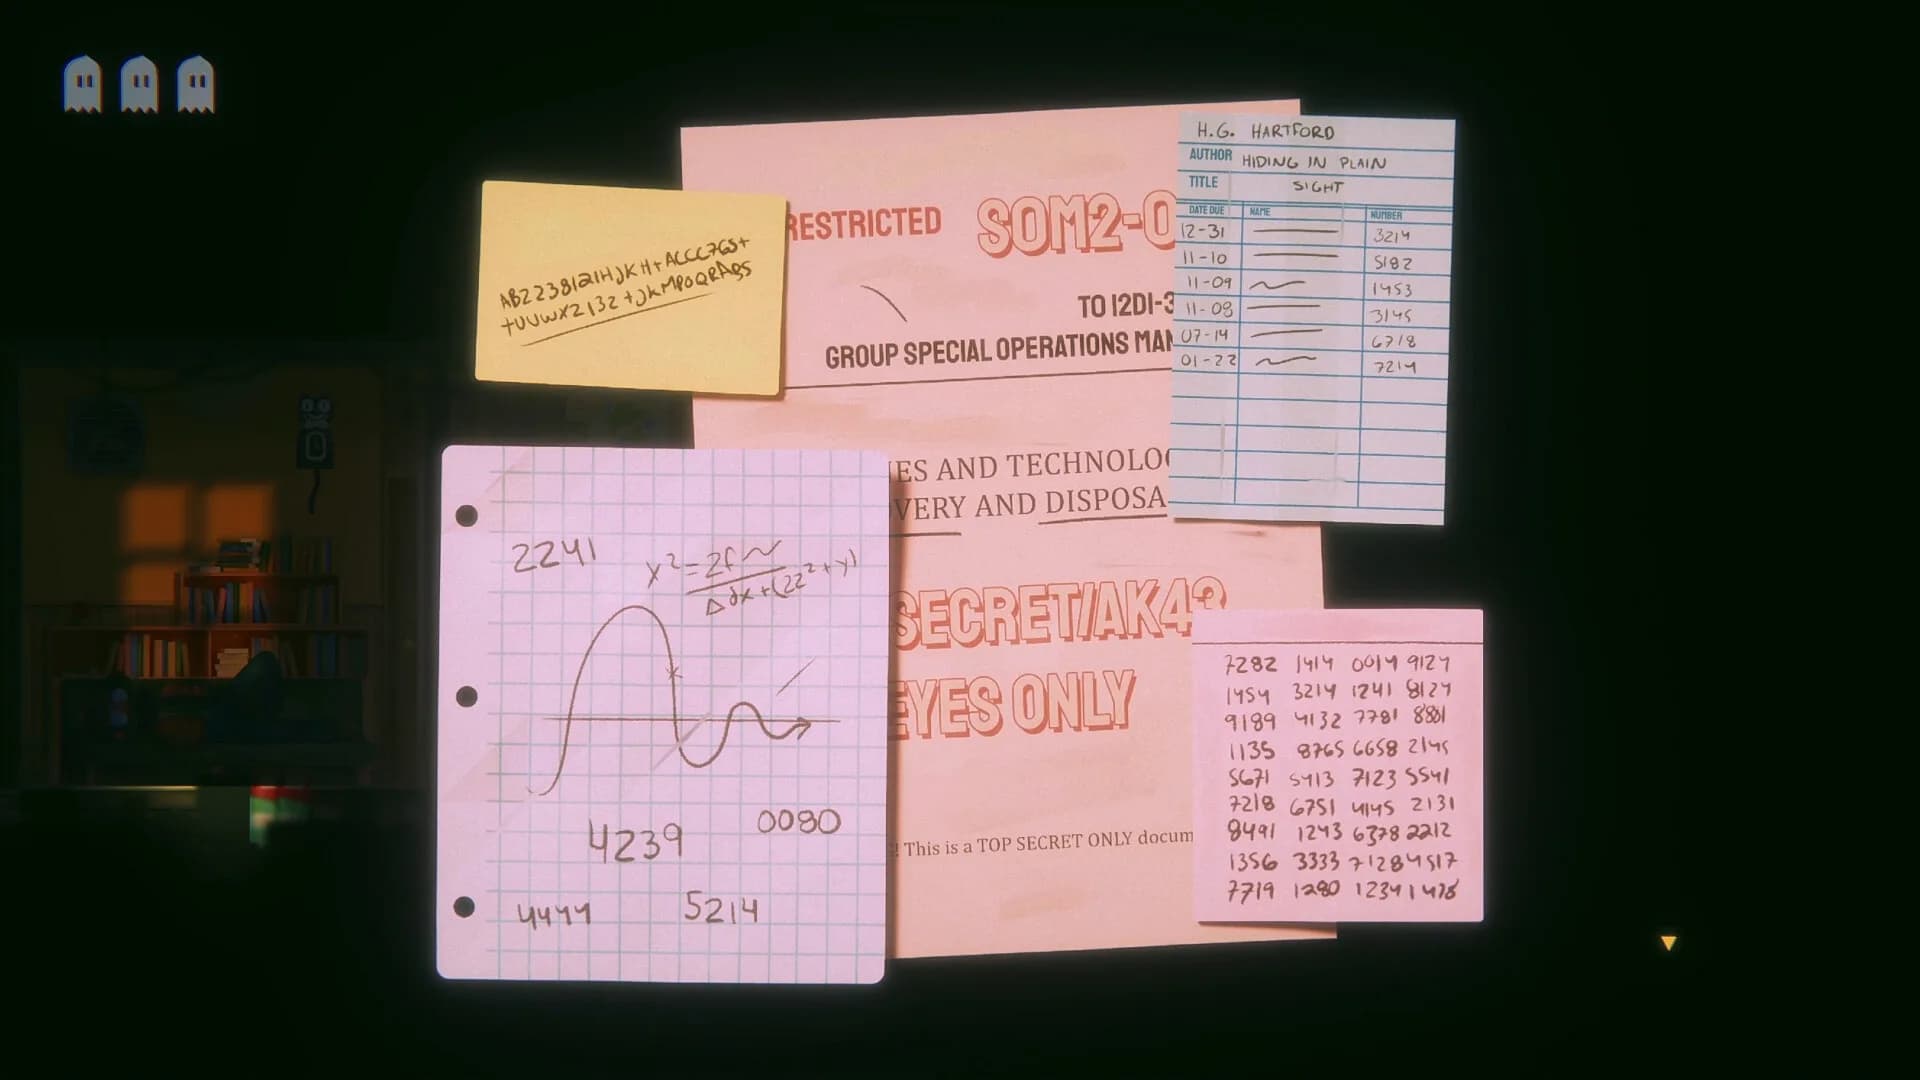 AB2238121HJKH+ACCC7GS+
+UUWX2132+JKMPOQRABS
RESTRICTED
SOM2-0
TO 12DI-3
GROUP SPECIAL OPERATIONS MAN
IES AND TECHNOLOG
VERY AND DISPOSA
SECRET/AK43
EYES ONLY
! This is a TOP SECRET ONLY docum
H.G. HARTFORD
AUTHOR HIDING IN PLAIN
TITLE SIGHT
DATE DUE NAME NUMBER
12-31 3214
11-10 5182
11-09 1453
11-08 3145
07-14 6718
01-22 7214
2241
4239
0080
4444
5214
7282 1414 0014 9124
1454 3214 1241 8124
9189 4132 7781 8881
1135 8765 6658 2145
5671 5413 7123 5541
7218 6751 4145 2131
8491 1243 6378 2212
1356 3333 7128 4517
7719 1280 1234 1478